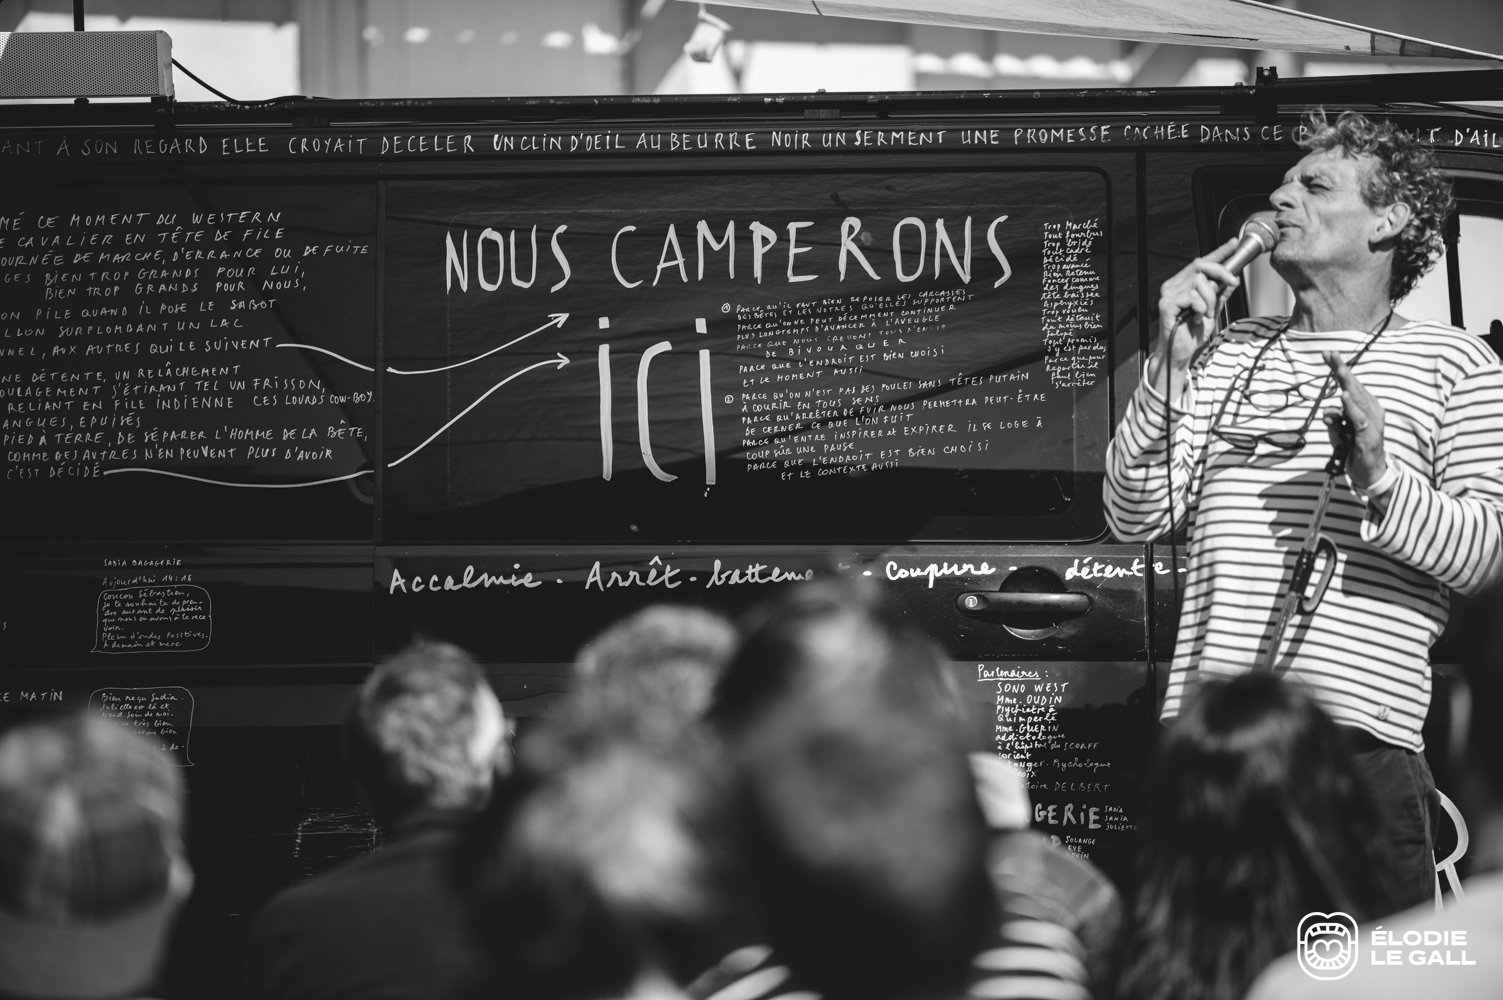 ANT À SON REGARD ELLE CROYAIT DECELER UN CLIN D'OEIL AU BEURRE NOIR UN SERMENT UNE PROMESSE CACHÉE DANS CE
MÉ CE MOMENT DU WESTERN
E CAVALIER EN TÊTE DE FILE
OURNÉE DE MARCHE, D'ERRANCE OU DE FUITE
GES BIEN TROP GRANDS POUR LUI,
BIEN TROP GRANDS POUR NOUS,
ON PILE QUAND IL POSE LE SABOT
LLON SURPLOMBANT UN LAC
NNEL, AUX AUTRES QUI LE SUIVENT
NE DÉTENTE, UN RELÂCHEMENT
OULAGEMENT S'ÉTIRANT TEL UN FRISSON,
RELIANT EN FILE INDIENNE CES LOURDS COW-BOY
ANGUES, ÉPUISÉS
PIED À TERRE, DE SÉPARER L'HOMME DE LA BÊTE,
COMME DES AUTRES N'EN PEUVENT PLUS D'AVOIR
C'EST DÉCIDÉ
NOUS CAMPERONS
ICI
① PARCE QU'IL FAUT BIEN REPOSER LES CARCASSES
DES BÊTES ET LES VOTRES QU'ELLES SUPPORTENT
PARCE QU'ON NE PEUT DÉCEMMENT CONTINUER
PLUS LONGTEMPS D'AVANCER À L'AVEUGLE
PARCE QUE NOUS CREVONS TOUS D'ENVIE
DE BIVOUAQUER
PARCE QUE L'ENDROIT EST BIEN CHOISI
ET LE MOMENT AUSSI
② PARCE QU'ON N'EST PAS DES POULES SANS TÊTES PUTAIN
À COURIR EN TOUS SENS
PARCE QU'ARRÊTER DE FUIR NOUS PERMETTRA PEUT-ÊTRE
DE CERNER CE QUE L'ON FUIT
PARCE QU'ENTRE INSPIRER et EXPIRER IL SE LOGE À
COUP SÛR UNE PAUSE
PARCE QUE L'ENDROIT EST BIEN CHOISI
ET LE CONTEXTE AUSSI
Trop Marché
Tout Fourbus
Trop bridé
Tout cadré
Décidé
Trop avancé
Bien Retenu
Foncer comme
des dingues
tête baissée
Asphyxiés
Trop voulu
Tout détruit
du moins bien
salopé
Tout promis
s'y est perdu
Parce que pour
Repartir il
faut bien
s'arrêter
Accalmie - Arrêt - batteme - Coupure - détente -
SADIA BAGAGERIE
Aujourd'hui 14:16
Coucou Sébastien,
je te souhaite de pren-
dre autant de plaisir
que nous en avons à te rece
voir.
Plein d'ondes Positives.
À demain et merc
CE MATIN
Bien reçu Sadia.
Partenaires :
SONO WEST
Mme. OUDIN
Psychiatre à
Quimperlé
Mme. GUERIN
addictologue
à l'hôpital du SCORFF
Lorient
Psychologue
toire DELBERT
GERIE
SADIA
SANIA
JULIETTE
SOLANGE
EVE
KEVIN
ÉLODIE
LE GALL